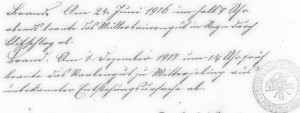 Brand. Am 24. Juni 1916 um halb 7 Uhr
abends brannte das Müllerbauerngut in Haging durch
Blitzschlag ab.
Brand. Am 1. Dezember 1917 um 1/4 Uhr früh
brannte das Raabengut zu Mitterziling aus
unbekannter Entstehungsursache ab.